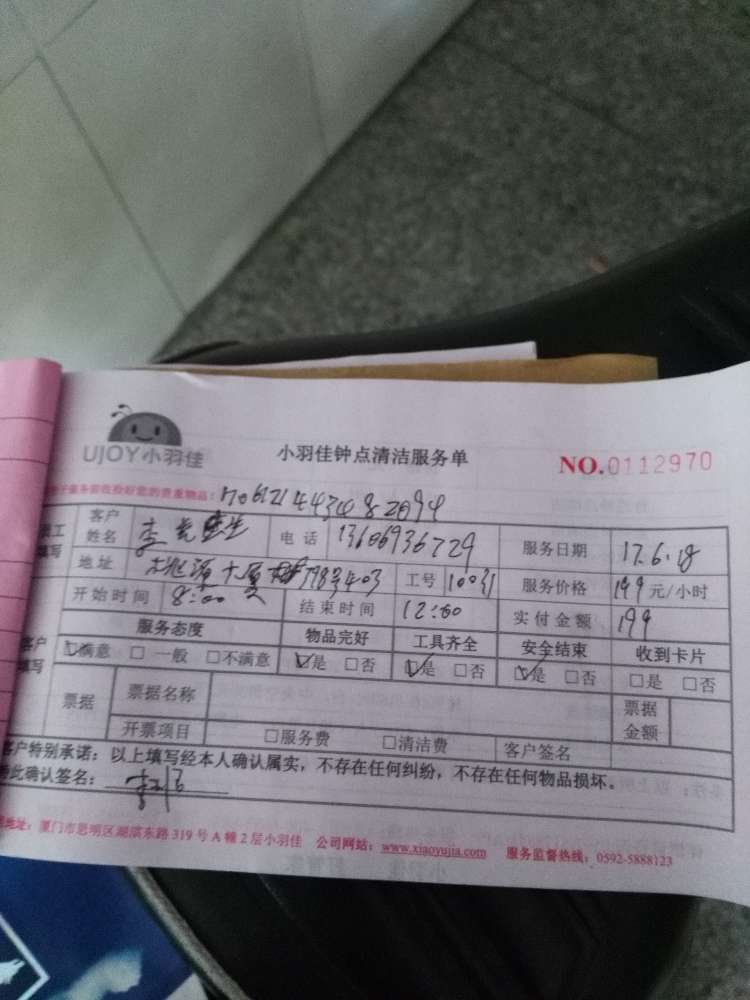 UJOY小羽佳
小羽佳钟点清洁服务单
NO.0112970
服务前收捡好您的贵重物品：
客户姓名 李 先生 电话 13606936729 服务日期 17.6.18
地址 桃源大厦 403 工号 10031 服务价格 199元/小时
开始时间 8:00 结束时间 12:00 实付金额 199
服务态度 物品完好 工具齐全 安全结束 收到卡片
☑满意 □一般 □不满意 ☑是 □否 ☑是 □否 ☑是 □否 □是 □否
票据 票据名称 票据金额
开票项目 □服务费 □清洁费 客户签名
客户特别承诺：以上填写经本人确认属实，不存在任何纠纷，不存在任何物品损坏。
此确认签名：
地址：厦门市思明区湖滨东路319号A幢2层小羽佳 公司网站：www.xiaoyujia.com 服务监督热线：0592-5888123